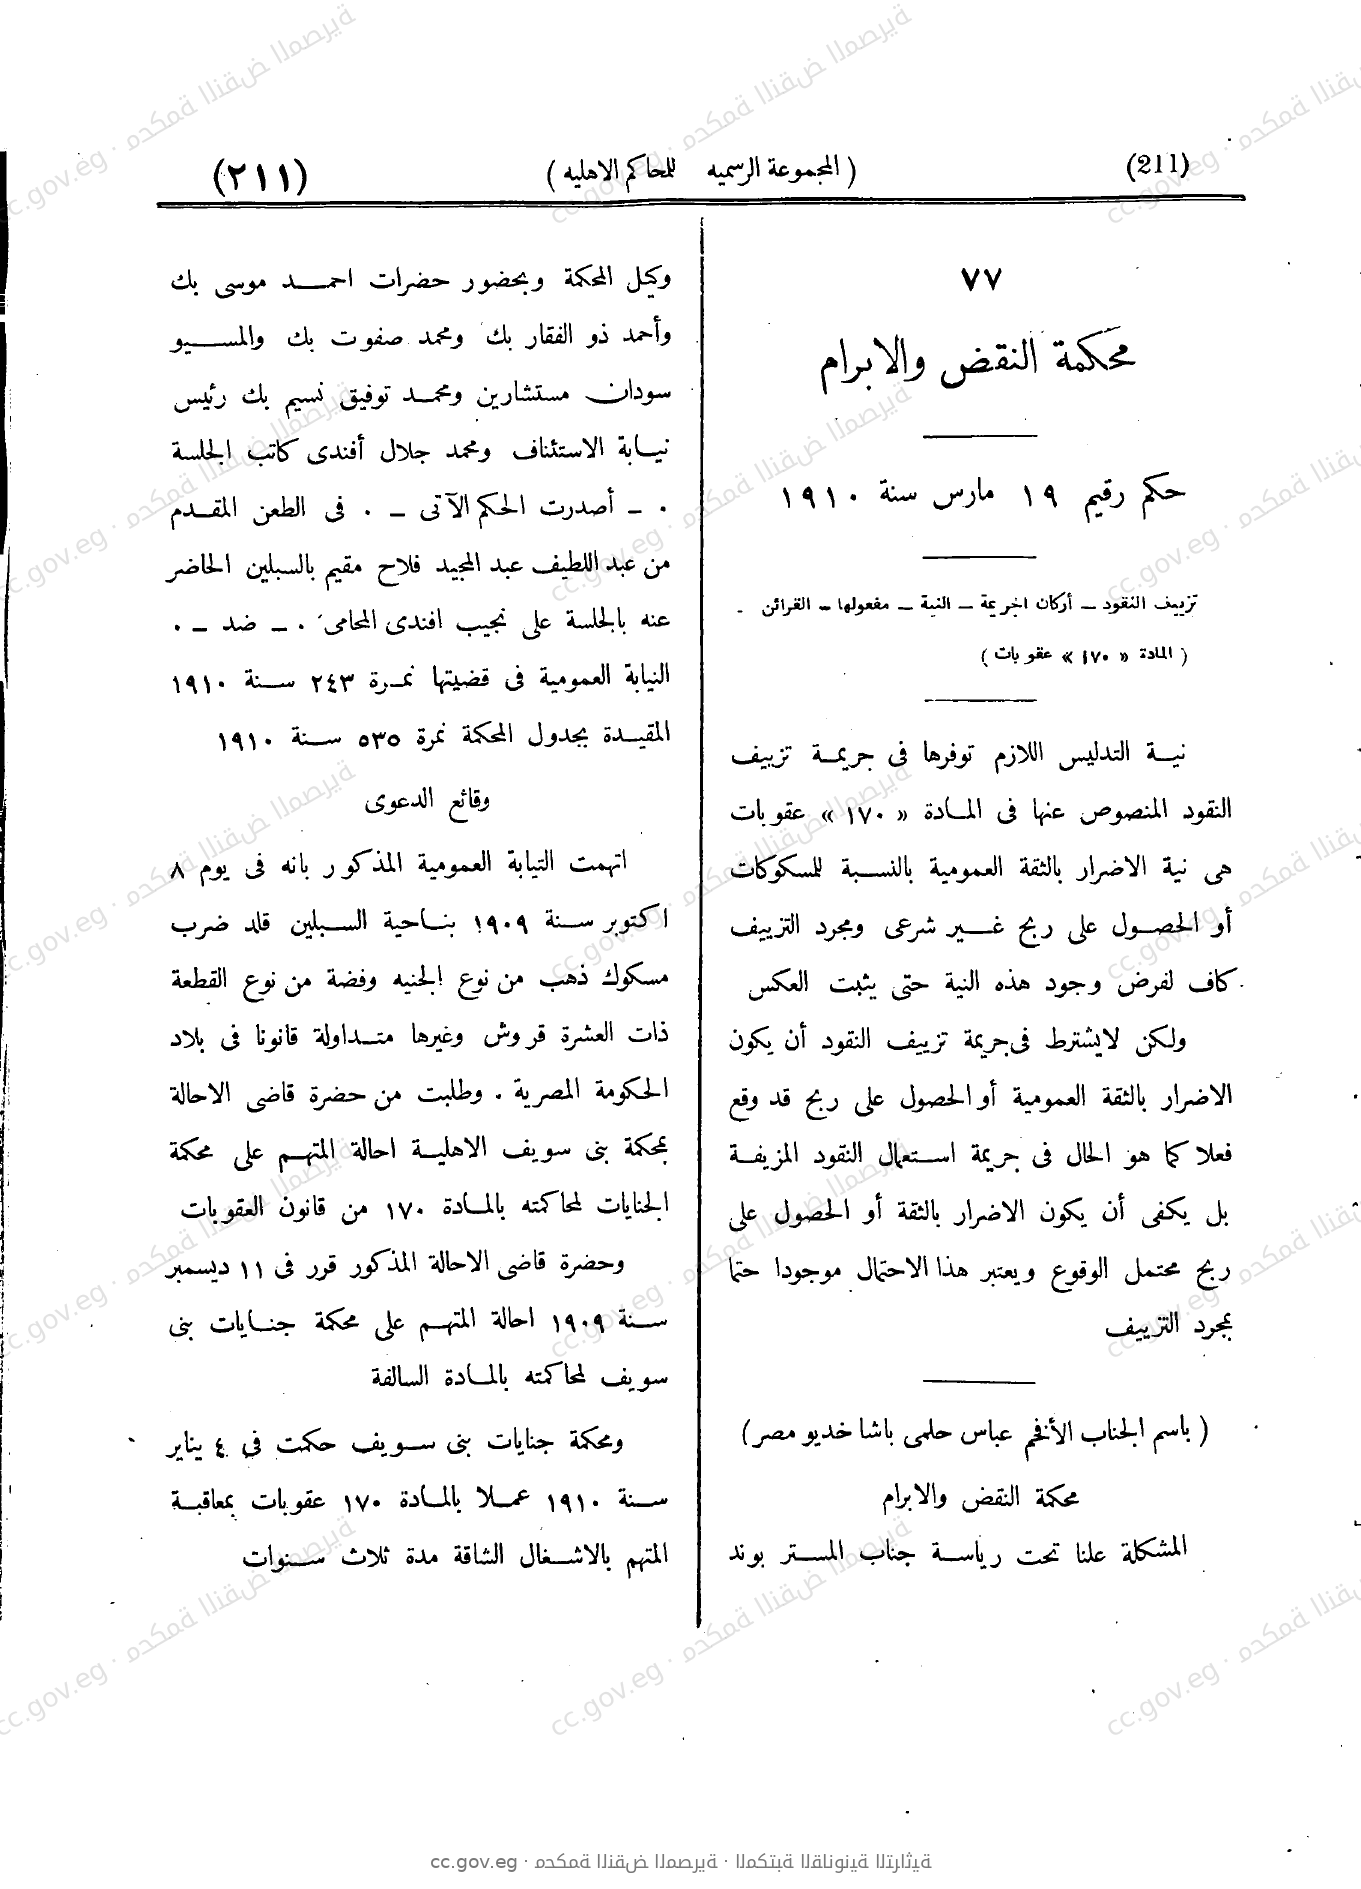 (211)
( المجموعة الرسميه للمحاكم الاهليه )
(٢١١)
٧٧
محكمة النقض والابرام
حكم رقيم ١٩ مارس سنة ١٩١٠
تزييف النقود – أركان الجريمة – النية – مفعولها – القرائن .
( المادة « ١٧٠ » عقوبات )
نيـة التدليس اللازم توفرها فى جريمـة تزييف
النقود المنصوص عنها فى المـادة « ١٧٠ » عقوبات
هى نية الاضرار بالثقة العمومية بالنسـبة للمسكوكات
أو الحصـول على ربح غـير شرعى ومجرد التزييف
كاف لفرض وجود هذه النية حتى يثبت العكس
ولكن لايشترط فى جريمة تزييف النقود أن يكون
الاضرار بالثقة العمومية أو الحصول على ربح قد وقع
فعلا كما هو الحال فى جريمة اسـتعمال النقود المزيفـة
بل يكفى أن يكون الاضرار بالثقة أو الحصول على
ربح محتمل الوقوع ويعتبر هذا الاحتمال موجودا حتما
بمجرد التزييف
( باسم الجناب الأفخم عباس حلمى باشا خديو مصر )
محكمة النقض والابرام
المشكلة علنا تحت رياسـة جناب المسـتر بوند
وكيل المحكمة وبحضور حضرات احمـد موسى بك
وأحمد ذو الفقار بك ومحمد صفوت بك والمسـيو
سودان مستشارين ومحمـد توفيق نسيم بك رئيس
نيـابة الاستئناف ومحمد جلال أفندى كاتب الجلسة
. – أصدرت الحكم الآتى – . فى الطعن المقـدم
من عبد اللطيف عبد المجيد فلاح مقيم بالسبلين الحاضر
عنه بالجلسة على نجيب افندى المحامى . – ضد – .
النيابة العمومية فى قضيتها نمـرة ٢٤٣ سـنة ١٩١٠
المقيـدة بجدول المحكمة نمرة ٥٣٥ سـنة ١٩١٠
وقائع الدعوى
اتهمت النيابة العمومية المذكور بانه فى يوم ٨
اكتوبر سـنة ١٩٠٩ بنـاحية السـبلين قلد ضرب
مسكوك ذهب من نوع الجنيه وفضة من نوع القطعة
ذات العشرة قروش وغيرها متـداولة قانونا فى بلاد
الحكومة المصرية . وطلبت من حضرة قاضى الاحالة
بمحكمة بنى سويف الاهليـة احالة المتهـم على محكمة
الجنايات لمحاكمته بالمـادة ١٧٠ من قانون العقوبات
وحضرة قاضى الاحالة المذكور قرر فى ١١ ديسمبر
سـنة ١٩٠٩ احالة المتهـم على محكمة جنـايات بنى
سويف لمحاكمته بالمـادة السالفة
ومحكمة جنايات بنى سـويف حكمت فى ٤ يناير
سـنة ١٩١٠ عمـلا بالمـادة ١٧٠ عقوبات بمعاقبـة
المتهم بالاشـغال الشاقة مدة ثلاث سـنوات
cc.gov.eg · محكمة النقض المصرية · المكتبة القانونية التراثية